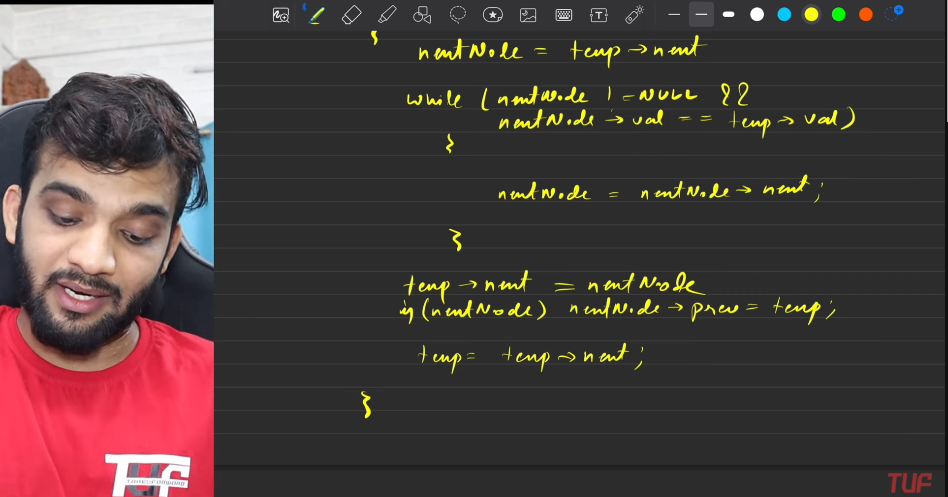 {
nextNode = temp → next
while (nextNode != NULL &&
nextNode → val == temp → val)
{
nextNode = nextNode → next;
}
temp → next = nextNode
if (nextNode) nextNode → prev = temp;
temp = temp → next;
}
TUF
TUF